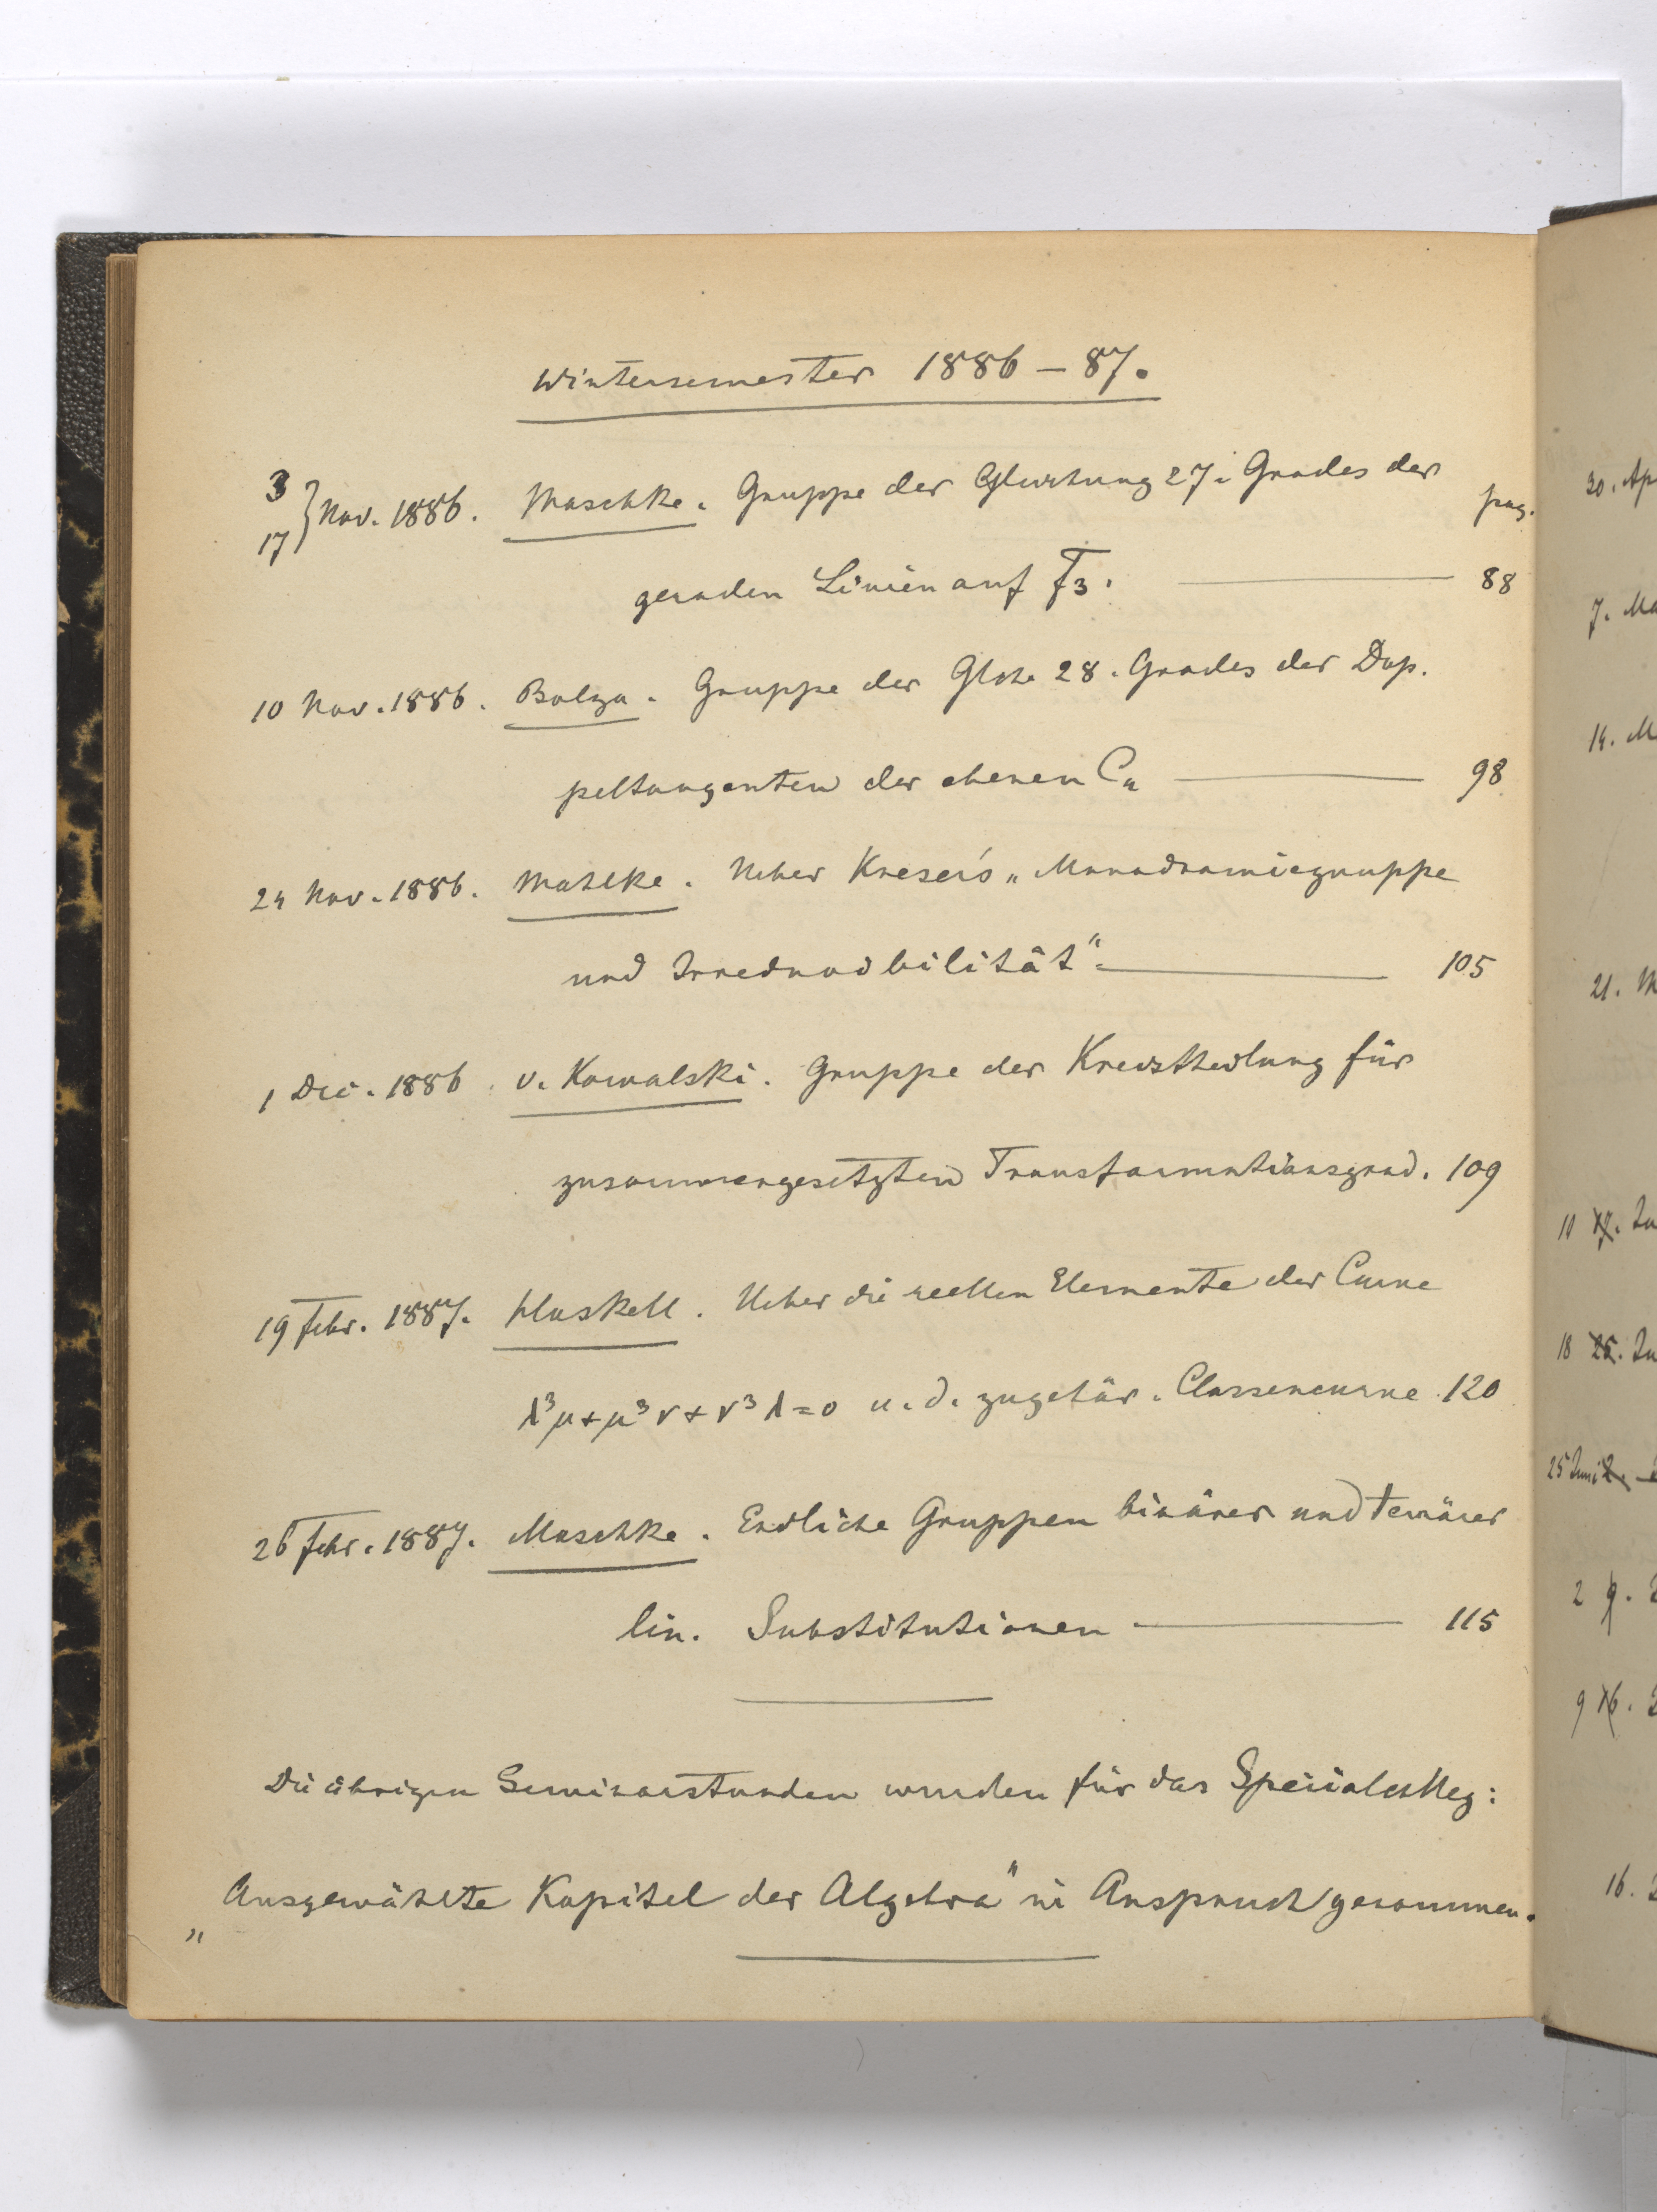 Wintersemester 1886–87.
3
17 } Nov. 1886. Maschke. Gruppe der Gleichung 27. Grades der
pag.
geraden Linien auf F3. — 88
10 Nov. 1886. Bolza. Gruppe der Glchg 28. Grades der Dop-
peltangenten der ebenen C4 — 98
24 Nov. 1886. Maschke. Ueber Kneser's „Monodromiegruppe
und Irreducibilität“ — 105
1 Dec. 1886. v. Kowalski. Gruppe der Kreistheilung für
zusammengesetzten Transformationsgrad. 109
19 Febr. 1887. Haskell. Ueber die reellen Elemente der Curve
λ³μ+μ³ν+ν³λ=0 u. d. zugehör. Classencurve 120
26 Febr. 1887. Maschke. Endliche Gruppen binärer und ternärer
lin. Substitutionen — 115
Die übrigen Seminarstunden wurden für das Specialcolleg:
„Ausgewählte Kapitel der Algebra“ in Anspruch genommen.
30. Ap
7. Ma
14. M
21. M
11 17. Ju
18 25. Ju
25 Juni 2.
2 9.
9 16.
16.